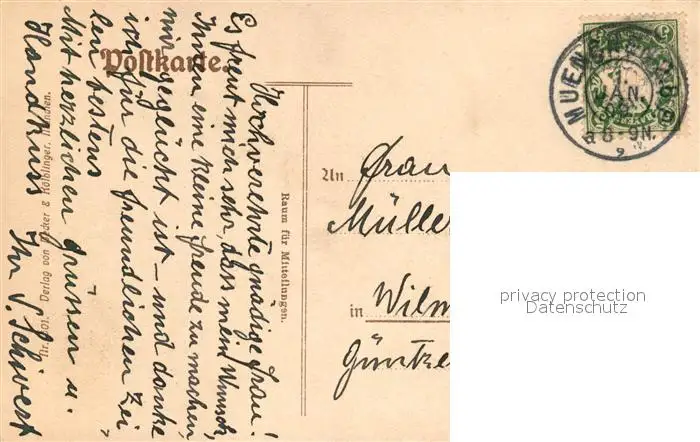 Postkarte.
Hochverehrte gnädige Frau!
Es freut mich sehr, dass mein Wunsch,
Ihnen eine kleine Freude zu machen,
mir geglückt ist – und danke
ich für die freundlichen Zei-
len bestens
Mit herzlichen Grüssen u.
Handkuss
Ihr S. Schwert
Raum für Mitteilungen.
Verlag von Hölblinger, München.
MUENCHEN
1.
JAN.
8-9N.
An Frau
Müller
in Wilm
Güntze
privacy protection
Datenschutz